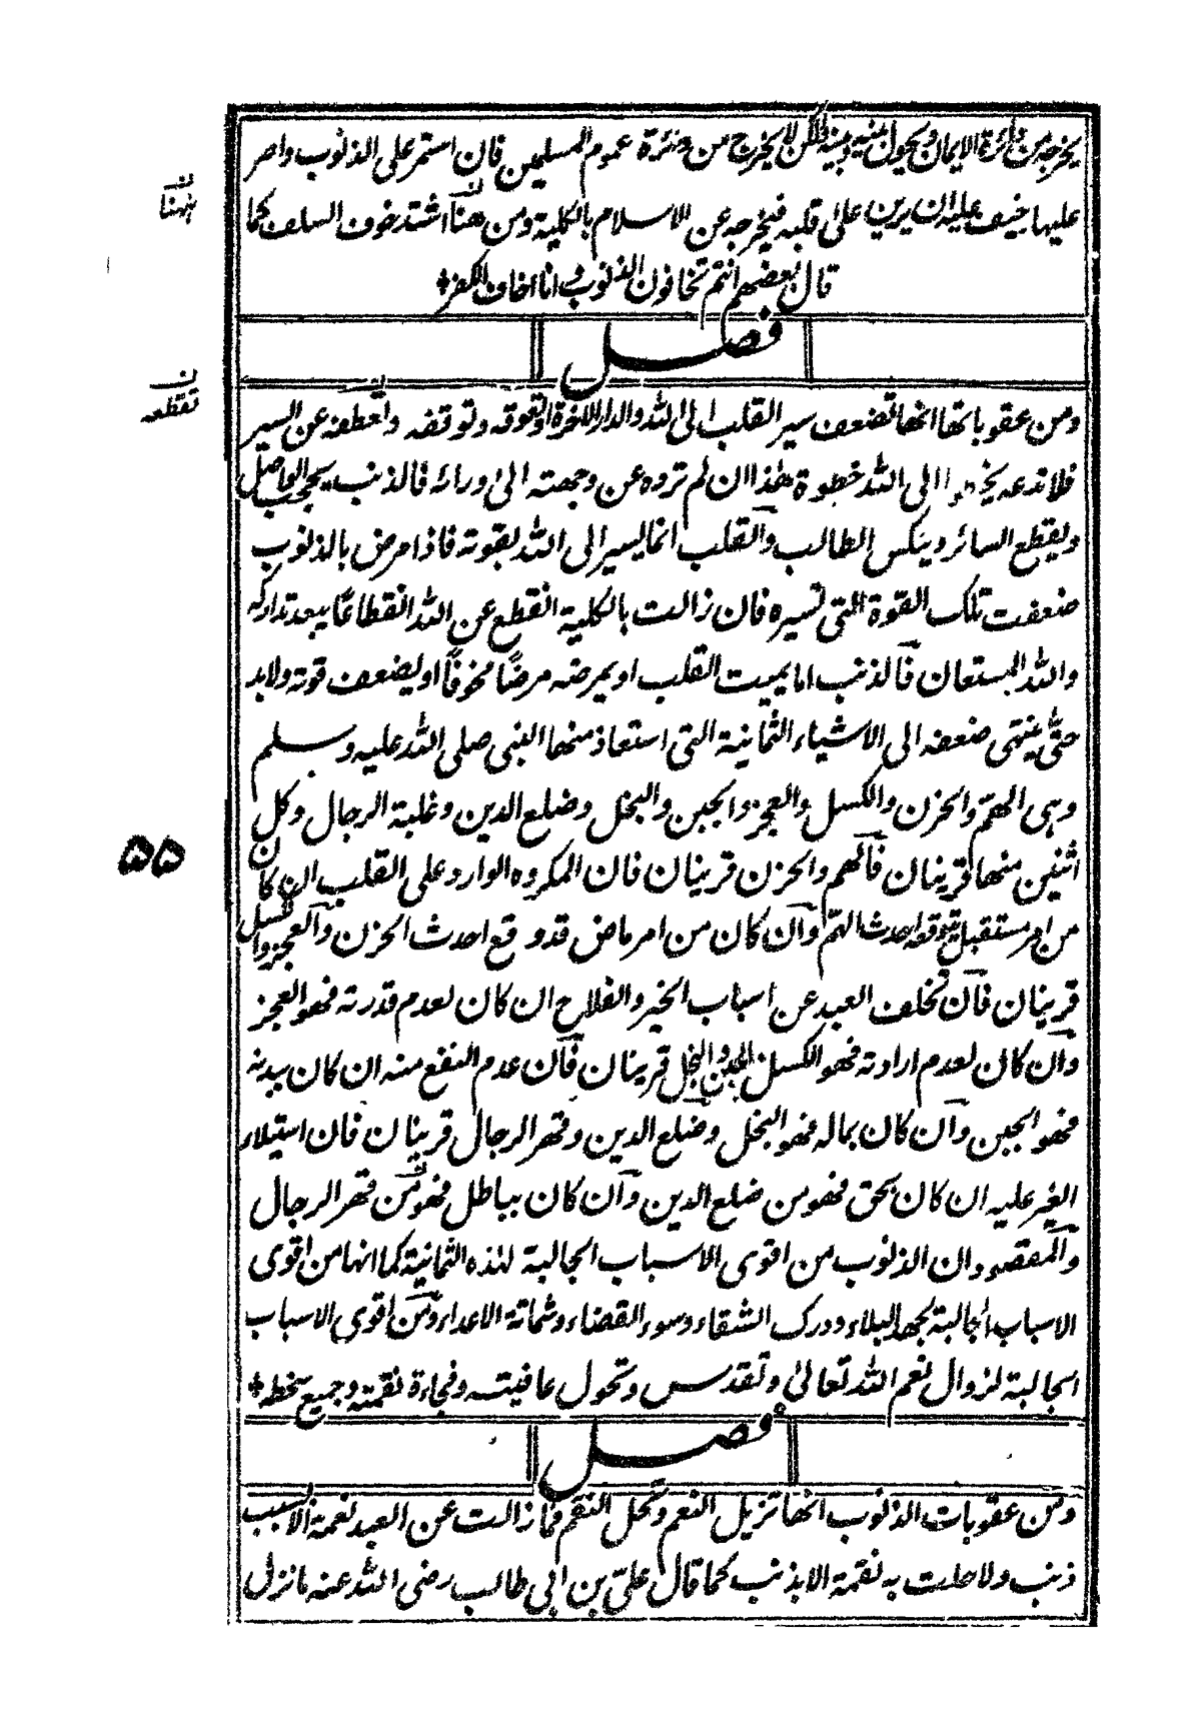 يخرجه من دائرة الايمان ويحول بينه وبينه ولكن لا يخرج من دائرة عموم المسلمين فان استمر على الذنوب واصر
عليها خيف عليه ان يرين على قلبه فيخرجه عن الاسلام بالكلية ومن هنا اشتد خوف السلف كما
قال بعضهم انتم تخافون الذنوب وانا اخاف الكفر
فصل
ومن عقوباتها انها تضعف سير القلب الى الله والدار الاخرة او تعوقه وتوقفه واعطفه عن السير
فلا تدعه يخطو الى الله خطوة هذا ان لم ترده عن وجهته الى ورائه فالذنب يحجب الواصل
ويقطع السائر وينكس الطالب والقلب انما يسير الى الله بقوته فاذا مرض بالذنوب
ضعفت تلك القوة التي تسيره فان زالت بالكلية انقطع عن الله انقطاعًا يبعد تداركه
والله المستعان فالذنب اما يميت القلب او يمرضه مرضًا مخوفًا او يضعف قوته ولابد
حتى ينتهى ضعفه الى الاشياء الثمانية التي استعاذ منها النبي صلى الله عليه وسلم
وهى الهمّ والحزن والكسل والعجز والجبن والبخل وضلع الدين وغلبة الرجال وكل
اثنين منها قرينان فالهم والحزن قرينان فان المكروه الوارد على القلب ان كان
من امر مستقبل يتوقعه احدث الهمّ وان كان من امر ماض قد وقع احدث الحزن والعجز والكسل
قرينان فان تخلف العبد عن اسباب الخير والفلاح ان كان لعدم قدرته فهو العجز
وان كان لعدم ارادته فهو الكسل والجبن والبخل قرينان فان عدم النفع منه ان كان ببدنه
فهو الجبن وان كان بماله فهو البخل وضلع الدين وقهر الرجال قرينان فان استيلاء
الغير عليه ان كان بحق فهو من ضلع الدين وان كان بباطل فهو من قهر الرجال
والمقصود ان الذنوب من اقوى الاسباب الجالبة لهذه الثمانية كما انها من اقوى
الاسباب الجالبة لجهد البلاء ودرك الشقاء وسوء القضاء وشماتة الاعداء ومن اقوى الاسباب
الجالبة لزوال نعم الله تعالى وتقدس وتحول عافيته وفجاءة نقمته وجميع سخطه
فصل
ومن عقوبات الذنوب انها تزيل النعم وتحل النقم فما زالت عن العبد نعمة الا بسبب
ذنب ولا حلت به نقمة الا بذنب كما قال علي بن ابي طالب رضى الله عنه ما نزل
ن
ههنا
ن
تقطعه
٥٥